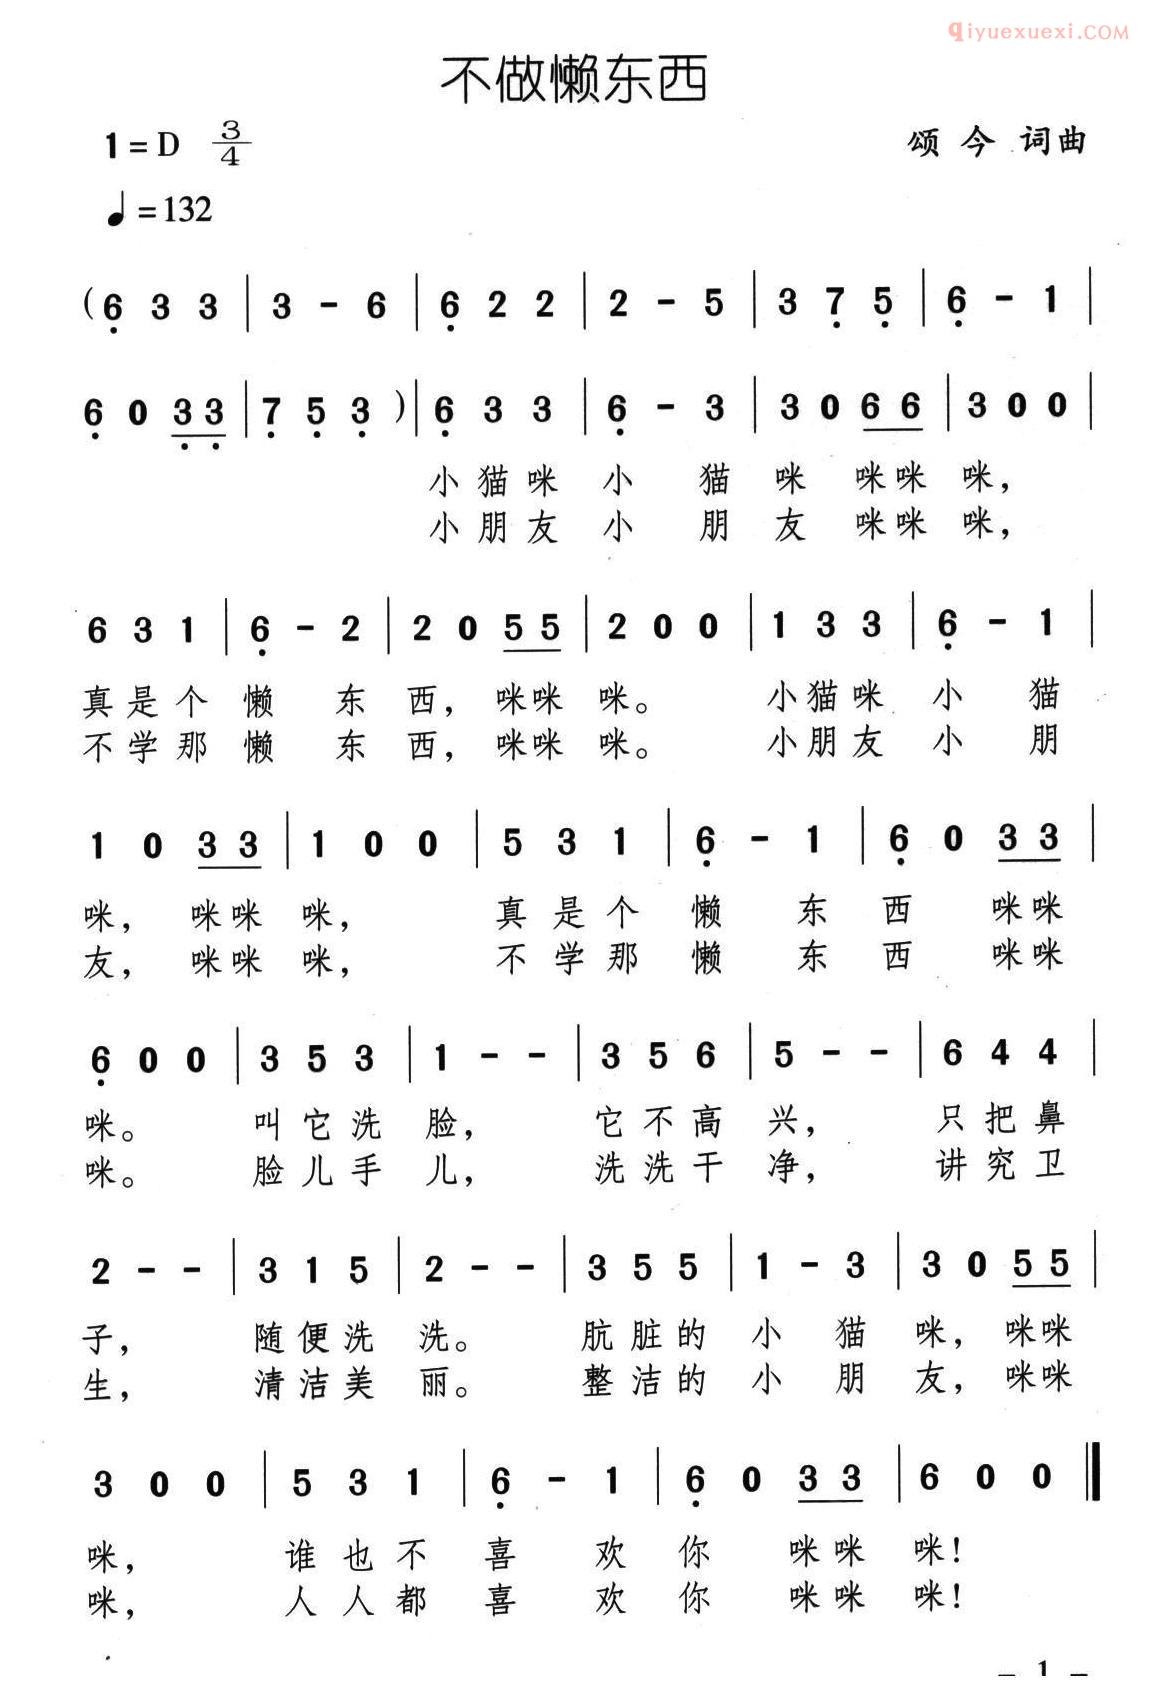 qiyuexuexi.COM
不做懒东西
1=D 3/4
颂今 词曲
♩=132
(6̣ 3 3 | 3 - 6 | 6̣ 2 2 | 2 - 5 | 3 7̣ 5̣ | 6̣ - 1 |
6̣ 0 3̣ 3̣ | 7̣ 5̣ 3̣ )| 6̣ 3 3 | 6̣ - 3 | 3 0 6 6 | 3 0 0 |
小猫咪 小 猫 咪 咪咪 咪，
小朋友 小 朋 友 咪咪 咪，
6 3 1 | 6̣ - 2 | 2 0 5 5 | 2 0 0 | 1 3 3 | 6̣ - 1 |
真是个 懒 东 西，咪咪 咪。 小猫咪 小 猫
不学那 懒 东 西，咪咪 咪。 小朋友 小 朋
1 0 3 3 | 1 0 0 | 5 3 1 | 6̣ - 1 | 6̣ 0 3 3 |
咪， 咪咪 咪， 真是个 懒 东 西 咪咪
友， 咪咪 咪， 不学那 懒 东 西 咪咪
6̣ 0 0 | 3 5 3 | 1 - - | 3 5 6 | 5 - - | 6 4 4 |
咪。 叫它洗 脸， 它不高 兴， 只把鼻
咪。 脸儿手 儿， 洗洗干 净， 讲究卫
2 - - | 3 1 5 | 2 - - | 3 5 5 | 1 - 3 | 3 0 5 5 |
子， 随便洗 洗。 肮脏的 小 猫 咪，咪咪
生， 清洁美 丽。 整洁的 小 朋 友，咪咪
3 0 0 | 5 3 1 | 6̣ - 1 | 6̣ 0 3 3 | 6 0 0 ‖
咪， 谁也不 喜 欢 你 咪咪 咪！
咪， 人人都 喜 欢 你 咪咪 咪！
- 1 -